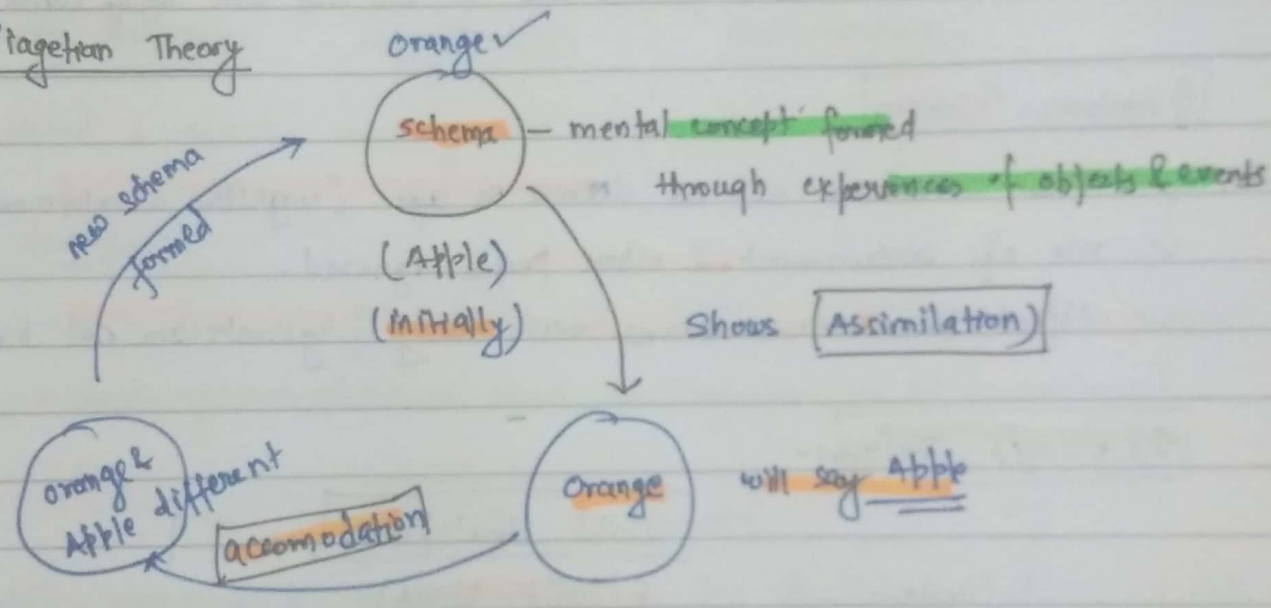 iagetian Theory
orange ✓
schema — mental concept formed
through experiences of objects & events
new schema
formed
(Apple)
(initially)
Shows (Assimilation)
orange &
Apple different
accomodation
Orange
will say Apple